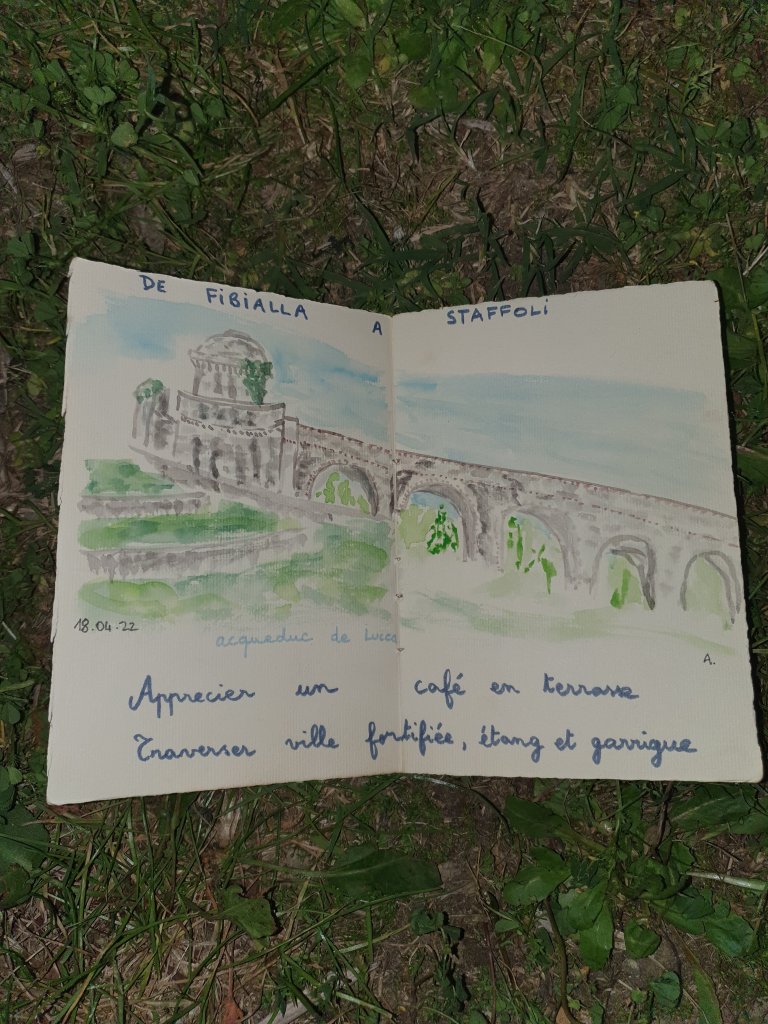 DE FIBIALLA A STAFFOLI
18.04.22
acqueduc de Lucca
A.
Apprecier un café en terrasse
Traverser ville fortifiée, étang et garrigue